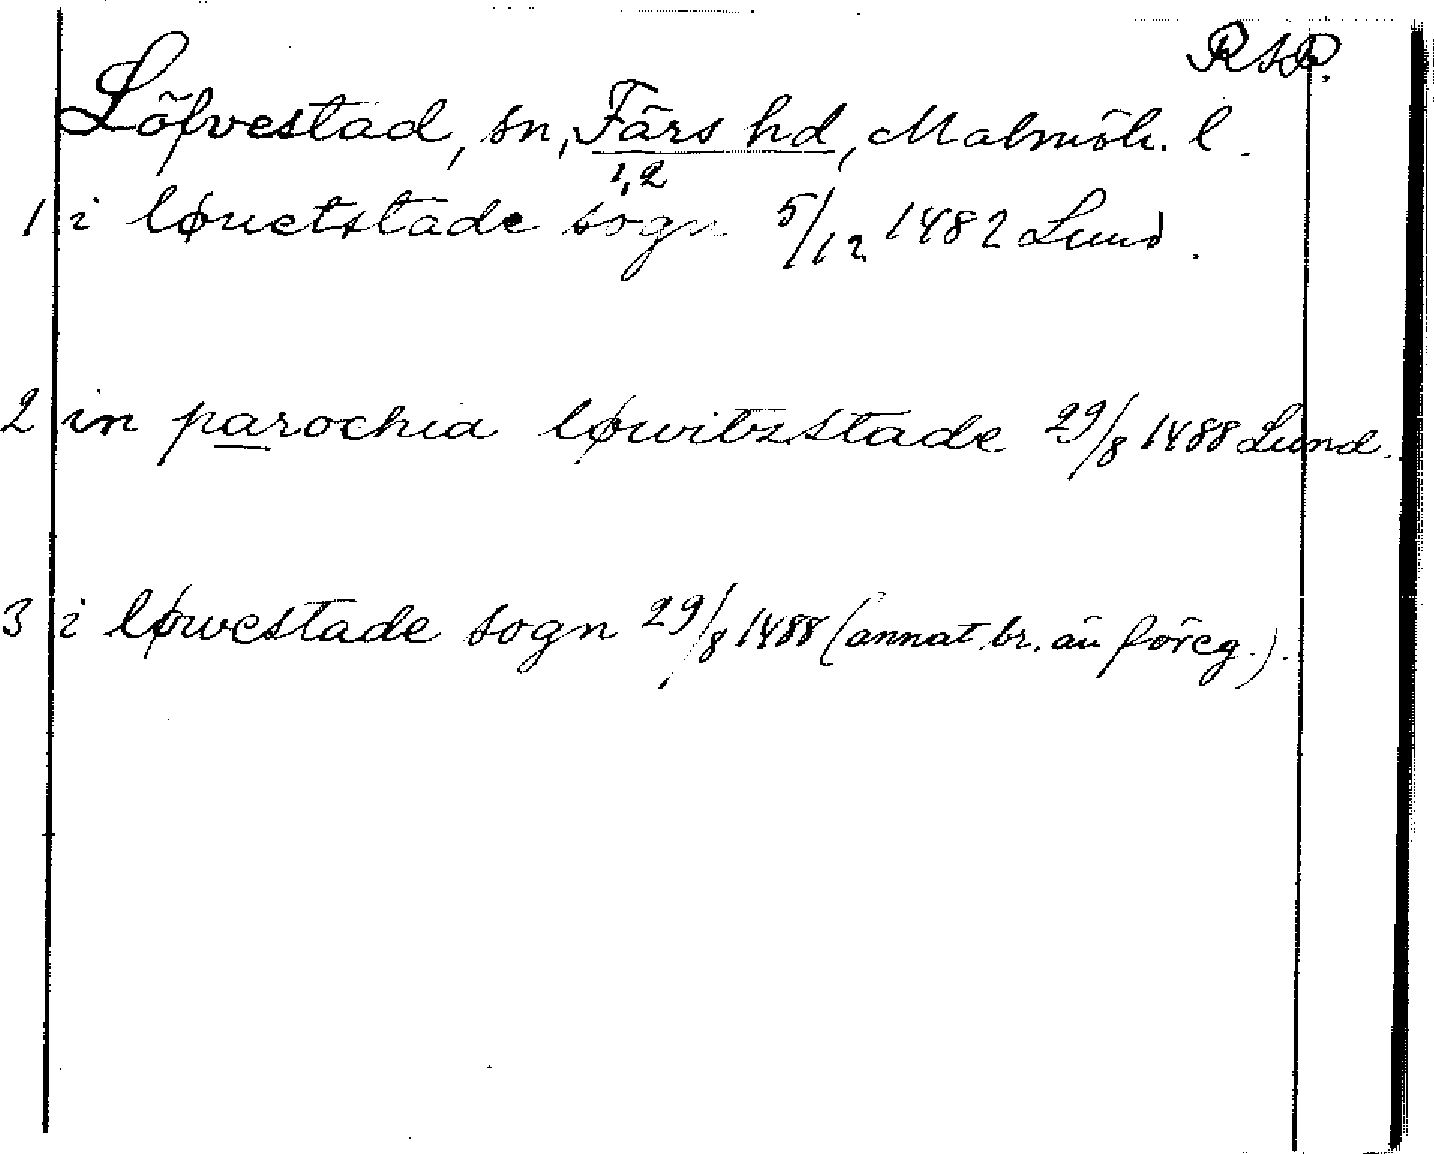 RAP.
Löfvestad, sn, Färs hd, Malmöh. l.
1,2
1 i løuetstade sogn 5/12 1482 Lund.
2 in parochia løwitzstade 29/8 1488 Lund.
3 i løwestade sogn 29/8 1488 (annat br. än föreg.).